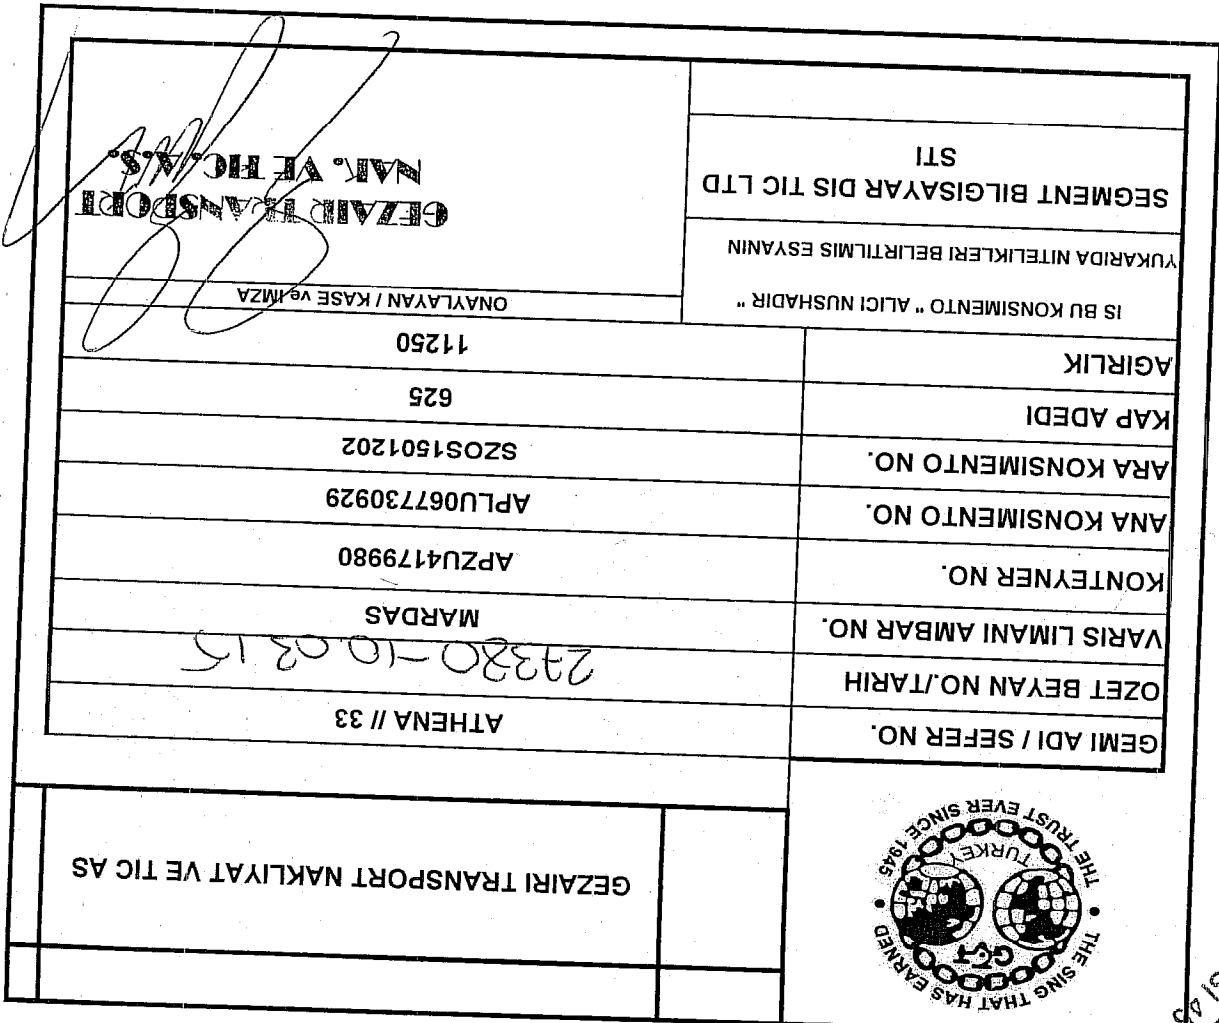 THE SING THAT HAS EARNED
THE TRUST EVER SINCE 1945
GCT
TURKEY
GEZAIRI TRANSPORT NAKLIYAT VE TIC AS
GEMI ADI / SEFER NO. ATHENA // 33
OZET BEYAN NO./TARIH 27380-10.03 15
VARIS LIMANI AMBAR NO. MARDAS
KONTEYNER NO. APZU4179980
ANA KONSIMENTO NO. APLU067730929
ARA KONSIMENTO NO. SZOS1501202
KAP ADEDI 625
AGIRLIK 11250
IS BU KONSIMENTO " ALICI NUSHADIR "
YUKARIDA NITELIKLERI BELIRTILMIS ESYANIN
SEGMENT BILGISAYAR DIS TIC LTD
STI
ONAYLAYAN / KASE ve IMZA
GEZAIRI TRANSPORT
NAK. VE TIC. A.S.